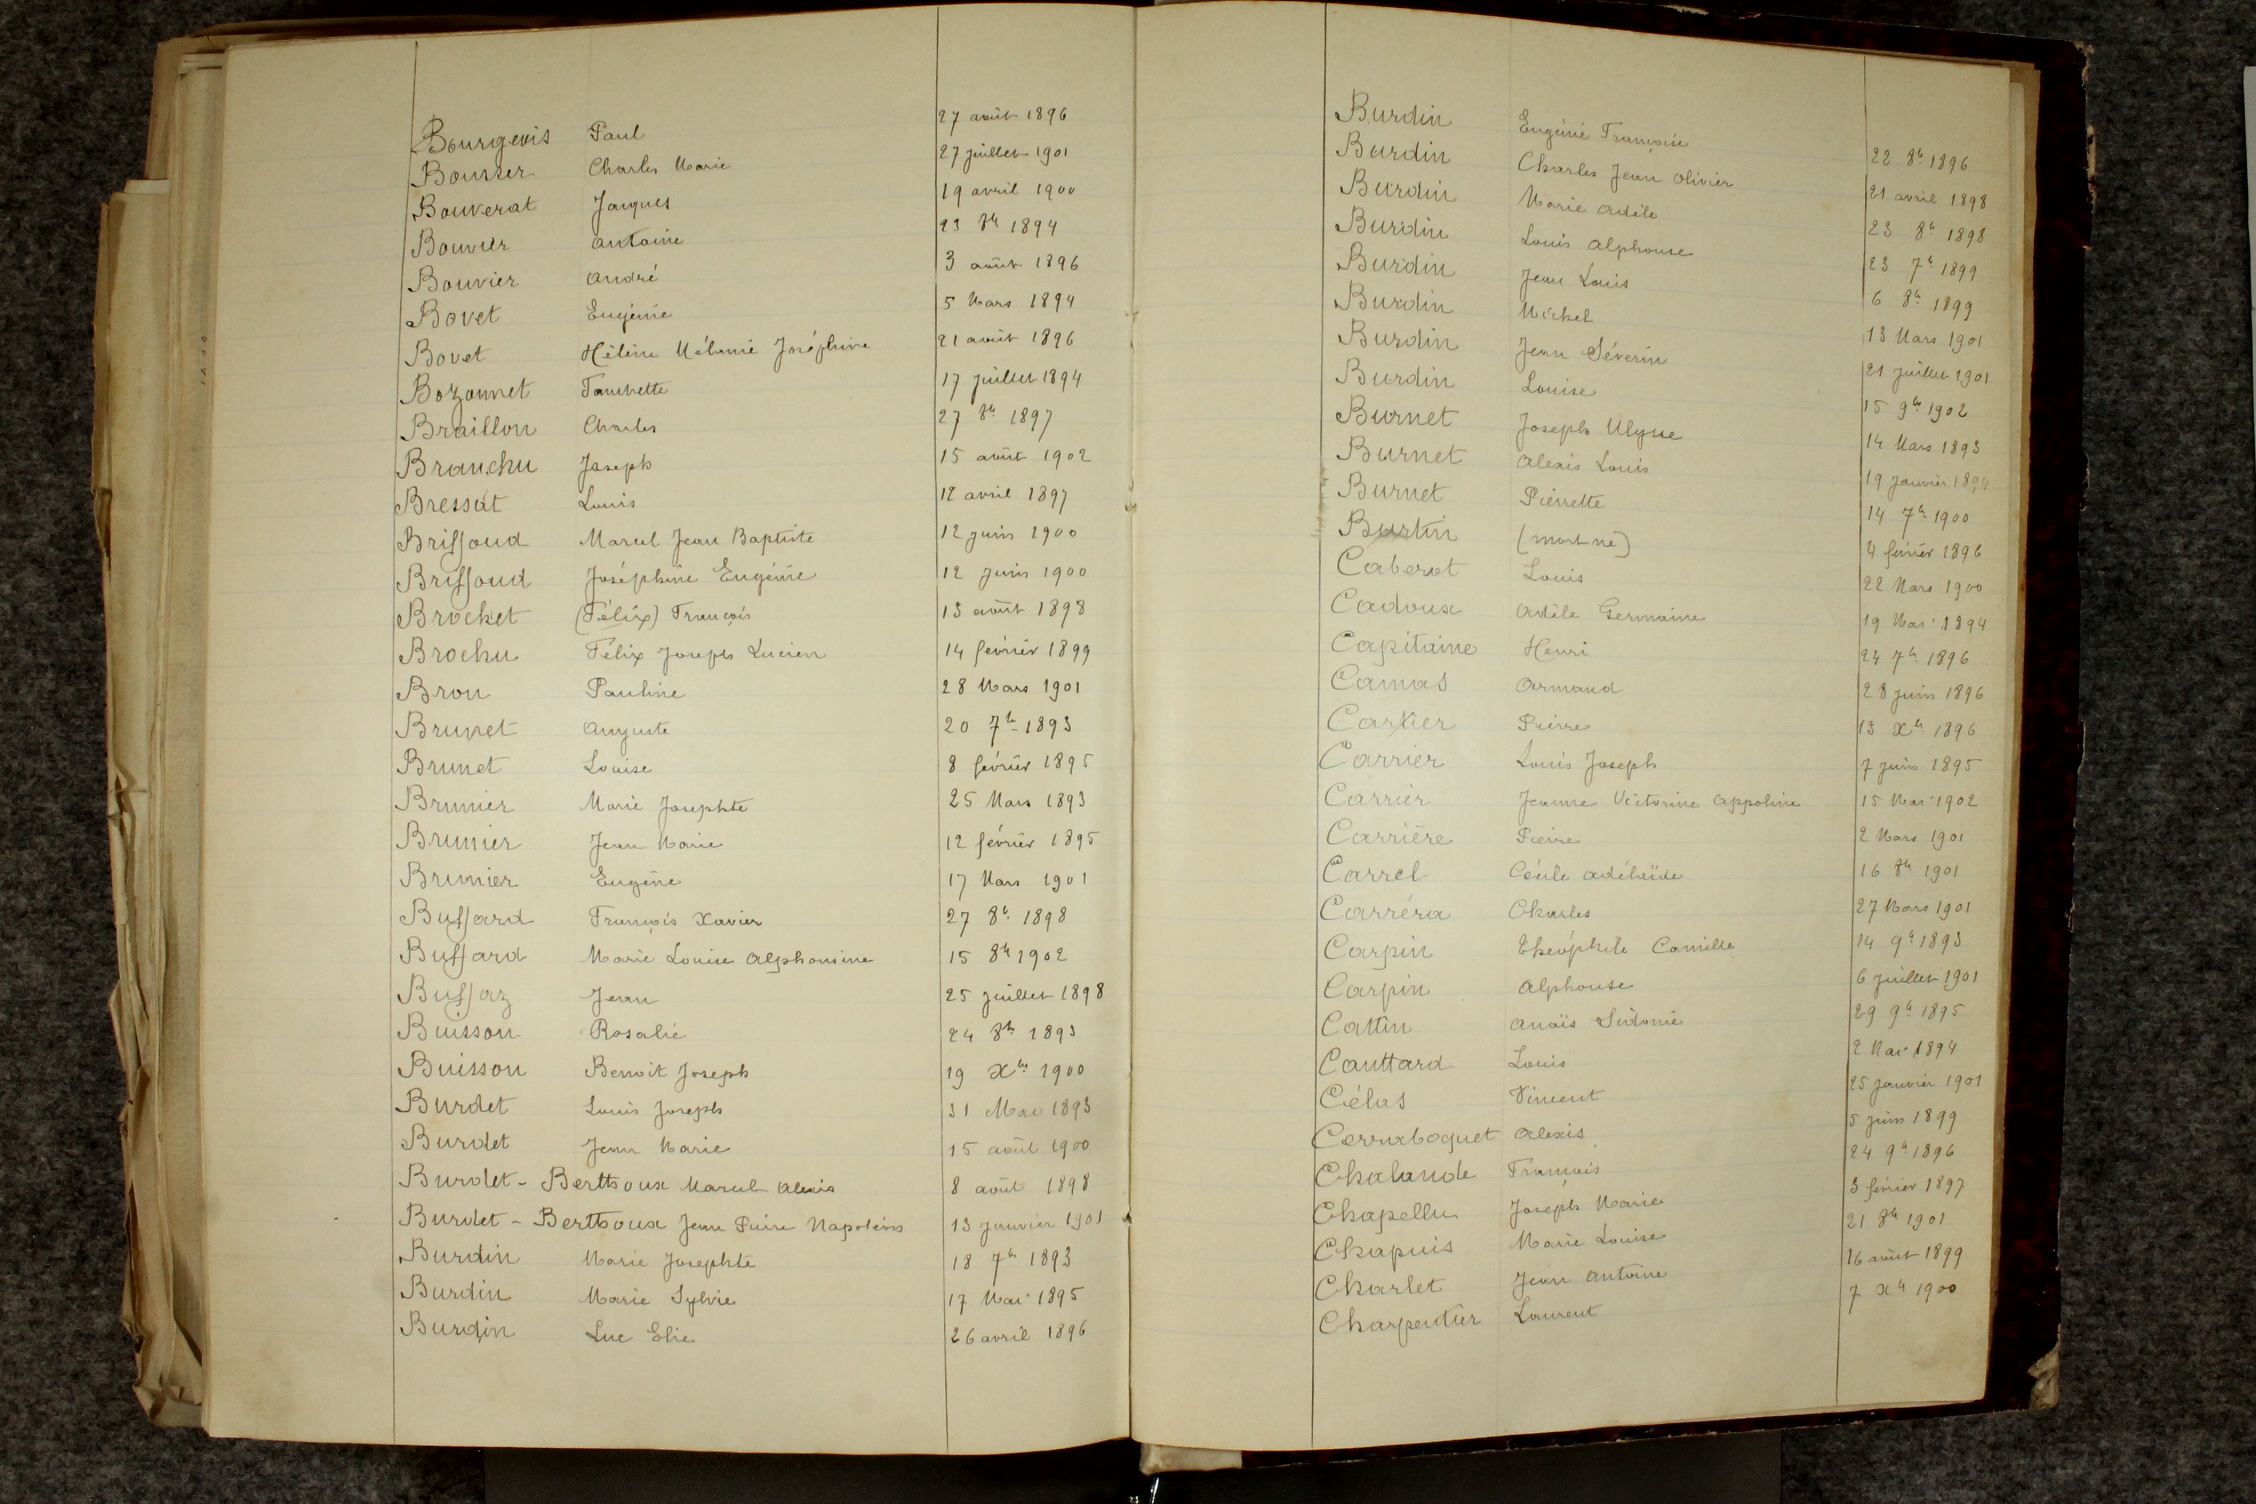 Bourgeois Paul 27 août 1896
Bourser Charles Marie 27 juillet 1901
Bouverat Jacques 19 avril 1900
Bouvier Antoine 23 8bre 1894
Bouvier André 3 août 1896
Bovet Eugénie 5 Mars 1894
Bovet Hélène Mélanie Joséphine 21 août 1896
Bozonnet Fanchette 17 juillet 1894
Braillon Charles 27 8bre 1897
Branchu Joseph 15 août 1902
Bressat Louis 12 avril 1897
Briffoud Marcel Jean Baptiste 12 juin 1900
Briffoud Joséphine Eugénie 12 juin 1900
Brochet (Félix) François 13 août 1898
Brochu Félix Joseph Lucien 14 février 1899
Bron Pauline 28 Mars 1901
Brunet Auguste 20 7bre 1893
Brunet Louise 8 février 1895
Brunier Marie Josephte 25 Mars 1893
Brunier Jean Marie 12 février 1895
Brunier Eugène 17 Mars 1901
Buffard François Xavier 27 8bre 1898
Buffard Marie Louise Alphonsine 15 8bre 1902
Buffaz Jean 25 juillet 1898
Buisson Rosalie 24 8bre 1893
Buisson Benoit Joseph 19 Xbre 1900
Burdet Louis Joseph 31 Mai 1893
Burdet Jean Marie 15 août 1900
Burdet-Berthoux Marcel Alexis 8 août 1898
Burdet-Berthoux Jean Pierre Napoléon 13 janvier 1901
Burdin Marie Josephte 18 7bre 1893
Burdin Marie Sylvie 17 Mai 1895
Burdin Luc Elie 26 avril 1896
Burdin Eugénie Françoise 22 8bre 1896
Burdin Charles Jean Olivier 21 avril 1898
Burdin Marie Adèle 23 8bre 1898
Burdin Louis Alphonse 23 7bre 1899
Burdin Jean Louis 6 8bre 1899
Burdin Michel 13 Mars 1901
Burdin Jean Séverin 21 juillet 1901
Burdin Louise 15 9bre 1902
Burnet Joseph Ulysse 14 Mars 1893
Burnet Alexis Louis 19 janvier 1894
Burnet Pierrette 14 7bre 1900
Burtin (mort né) 4 février 1896
Caberot Louis 22 Mars 1900
Cadoux Adèle Germaine 19 Mai 1894
Capitaine Henri 24 7bre 1896
Camas Armand 28 juin 1896
Cartier Pierre 13 Xbre 1896
Carrier Louis Joseph 7 juin 1895
Carrier Jeanne Victorine Appoline 15 Mai 1902
Carrière Pierre 2 Mars 1901
Carrel Cécile Adélaïde 16 8bre 1901
Carréra Charles 27 Mars 1901
Carpin Théophile Camille 14 9bre 1893
Carpin Alphonse 6 juillet 1901
Cattin Anaïs Sidonie 29 9bre 1895
Cauttard Louis 2 Mai 1894
Célas Vincent 25 janvier 1901
Cerruboquet Alexis 5 juin 1899
Chalande François 24 9bre 1896
Chapellu Joseph Marie 3 février 1897
Chapuis Marie Louise 21 8bre 1901
Charlet Jean Antoine 16 août 1899
Charpentier Laurent 7 Xbre 1900